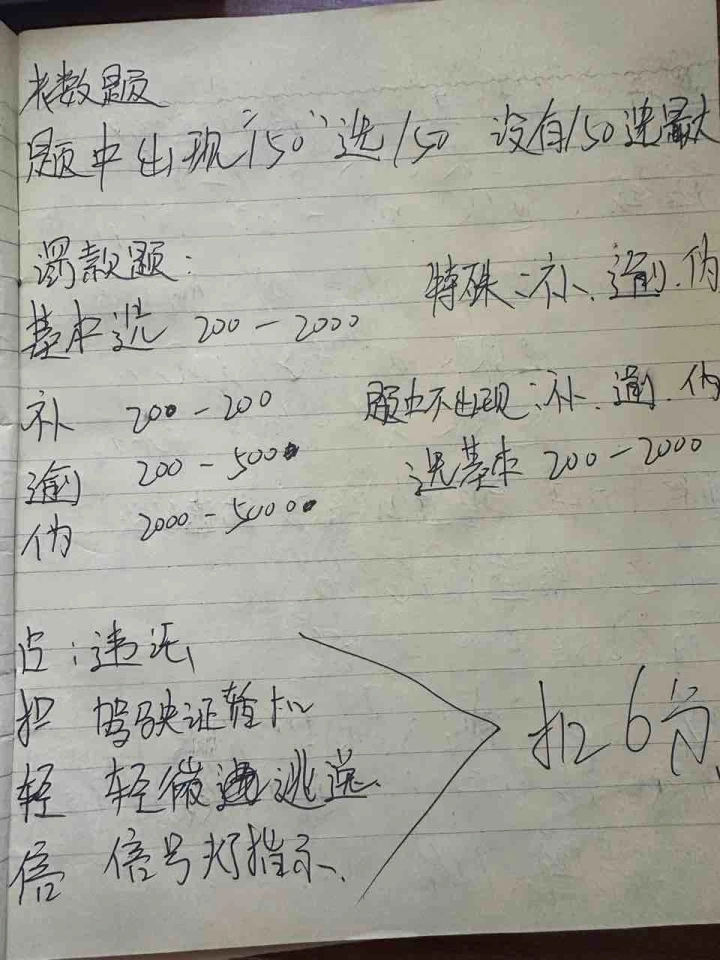 米数题
题中出现“150”选150 没有150选最大
罚款题:
特殊:补、逾、伪
基本选 200-2000
补 200-200
题中不出现:补、逾、伪
逾 200-500
选基本 200-2000
伪 2000-5000
占:违法
扣 驾驶证暂扣
扣6分
轻 轻微 逃逸
信 信号灯指示、